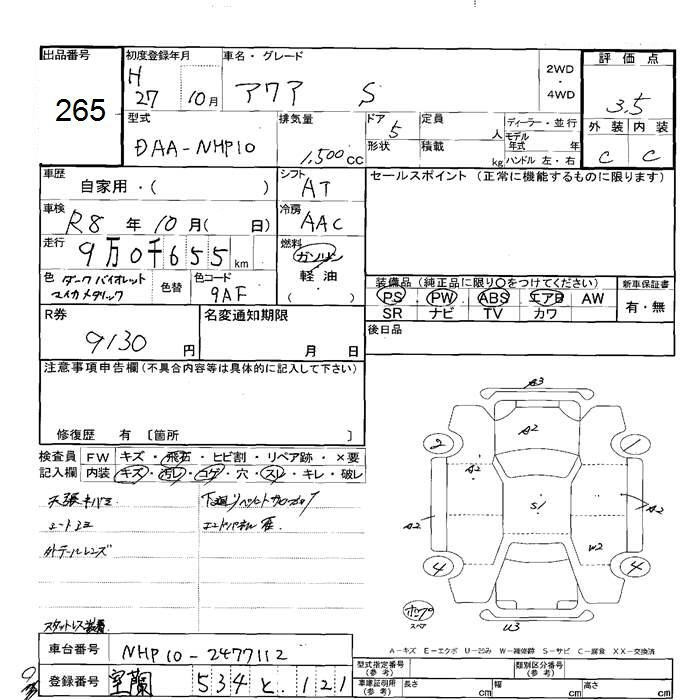 出品番号
265
初度登録年月
H
27 10月
車名・グレード
アクア S
2WD
・
4WD
評価点
3.5
外装 内装
C C
型式
DAA-NHP10
排気量
1,500cc
ドア
5
形状
定員
人
積載
kg
ディーラー・並行
モデル
年式 年
ハンドル 左・右
車歴
自家用・( )
シフト
AT
セールスポイント (正常に機能するものに限ります)
車検
R8 年 10 月( 日)
冷房
AAC
走行
9万0千655km
燃料
ガソリン
軽油
( )
色 ダークバイオレット
マイカメタリック
色替
色コード
9AF
装備品 (純正品に限り○をつけてください)
PS・PW・ABS・エアB AW
SR ナビ TV カワ
新車保証書
有・無
R券
9130 円
名変通知期限
月 日
後日品
注意事項申告欄(不具合内容等は具体的に記入して下さい)
修復歴 有 〔箇所 〕
検査員 FW キズ・飛石・ヒビ割・リペア跡・×要
記入欄 内装 キズ・汚レ・コゲ・穴・スレ・キレ・破レ
天張キバミ
外テールレンズ
スタットレス装着
A3
A2
2
1
A2
A2
S1
A2
W2
4
4
スペア
U3
A-キズ E-エクボ U-凹み W-補修跡 S-サビ C-腐食 XX-交換済
車台番号
NHP10-2477112
登録番号
室蘭 534 と・121
型式指定番号
(参考)
類別区分番号
(参考)
車庫証明用
(参考)
長さ cm
幅 cm
高さ cm